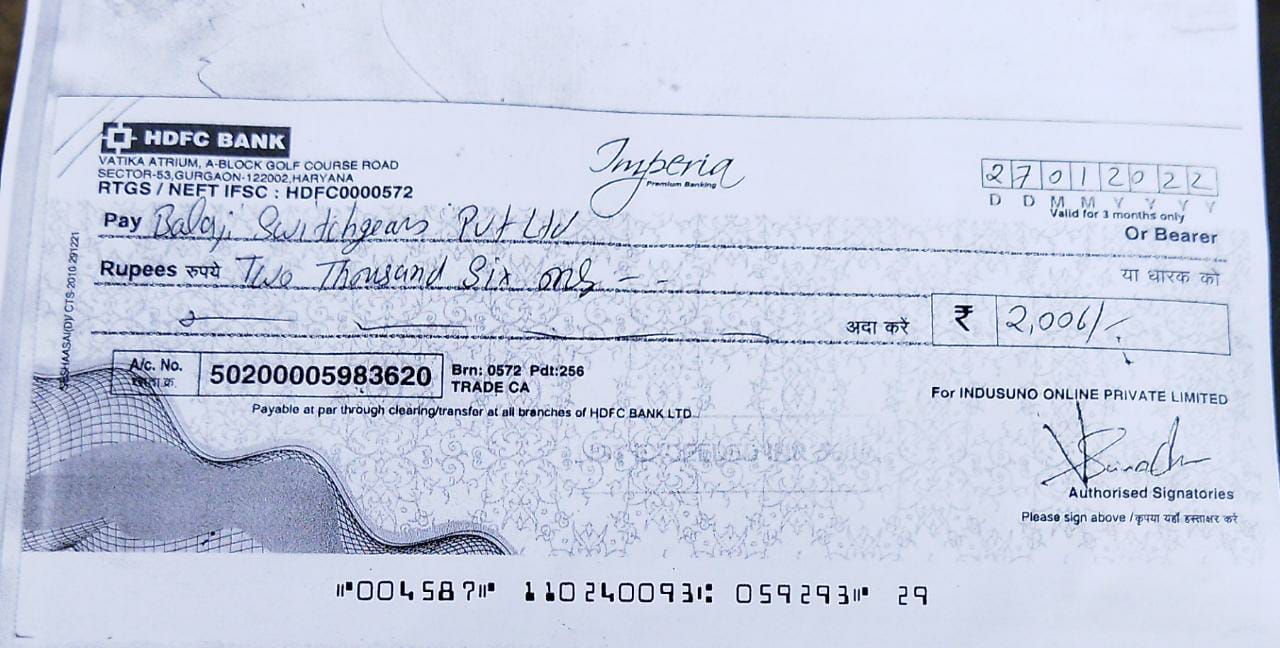 HDFC BANK
VATIKA ATRIUM, A-BLOCK GOLF COURSE ROAD
SECTOR-53,GURGAON-122002,HARYANA
RTGS / NEFT IFSC : HDFC0000572
Imperia
Premium Banking
27012022
D D M M Y Y Y Y
Valid for 3 months only
Pay Balaji Switchgears Pvt Ltd
Or Bearer
Rupees रुपये Two Thousand Six only - -
या धारक को
अदा करें ₹ 2,006/-
A/c. No. 50200005983620 Brn: 0572 Pdt:256
TRADE CA
Payable at par through clearing/transfer at all branches of HDFC BANK LTD
For INDUSUNO ONLINE PRIVATE LIMITED
Authorised Signatories
Please sign above /कृपया यहाँ हस्ताक्षर करें
CTS-2010 291221
⑈004587⑈ 110240093⑆ 059293⑈ 29